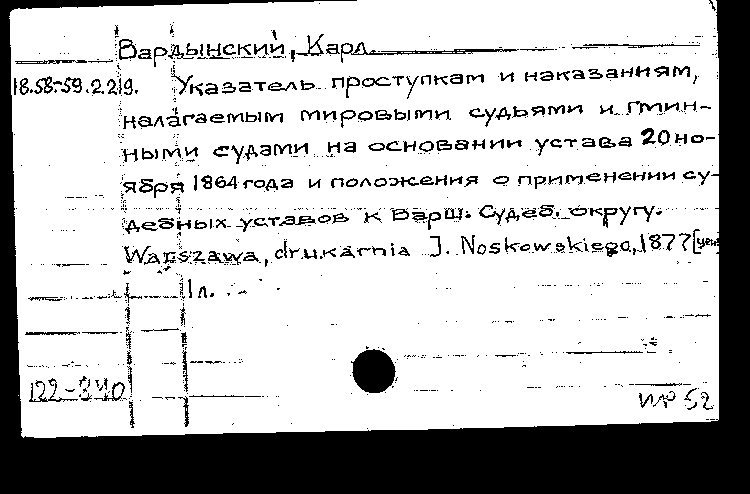 Вардынский, Карл.
18.58-59.2.219. Указатель проступкам и наказаниям,
налагаемым мировыми судьями и гмин-
ными судами на основании устава 20 но-
ября 1864 года и положения о применении су-
дебных уставов к Варш. Судеб. округу.
Warszawa, drukarnia J. Noskowskiego, 1877 [ценз
1 л.
122-840
ИР 52